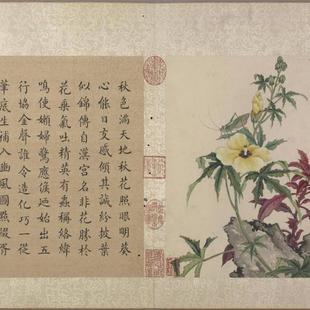 秋色滿天地秋花照眼明葵
心能日感傾其誠紛披葉
似錦傳自漢宮名非花勝於
花氣吐精英有蟲稱絡緯
鳴使嬾婦驚應候始出五
行協金聲誰令造化巧一從
筆底生補入豳風圖